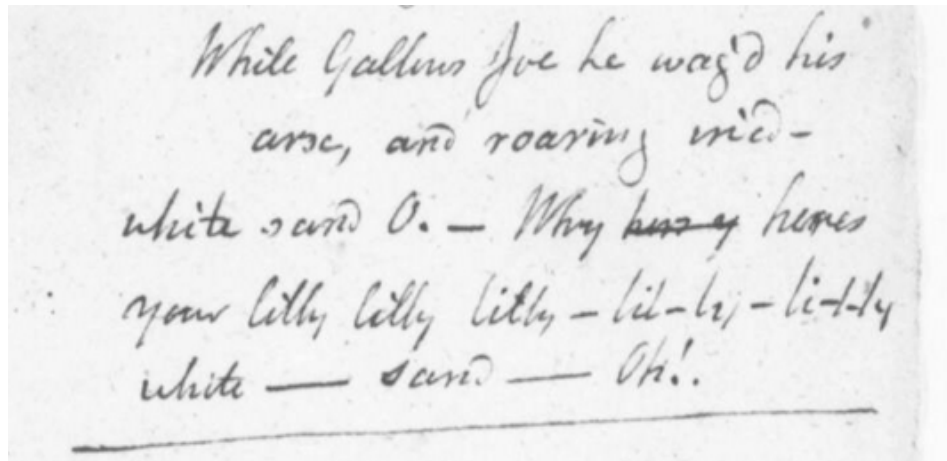 While Gallows Joe he wag'd his
arse, and roaring cried -
white sand O. — Why heres
your lilly lilly lilly - lil-ly - li-l-ly
white — sand — Oh!.